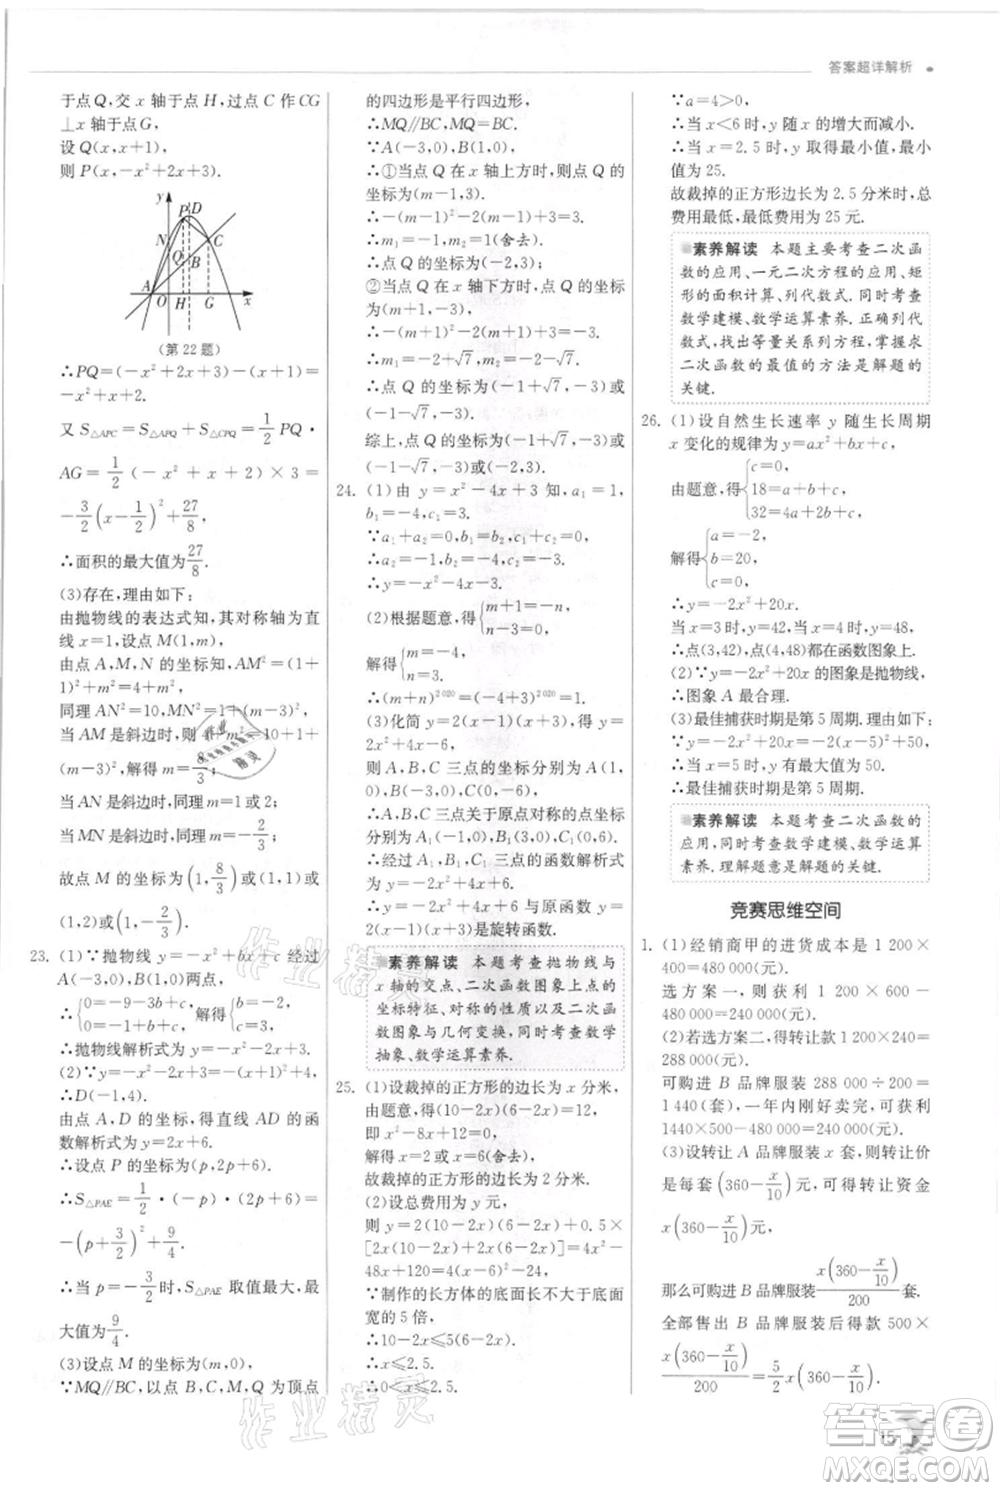 答案超详解析
于点Q,交 x 轴于点 H,过点 C 作 CG
⊥x 轴于点G,
设 Q(x,x+1),
则 P(x,-x²+2x+3).
y
P
D
N
C
Q
B
A
O
H
G
x
(第 22 题)
∴PQ=(-x²+2x+3)-(x+1)=
-x²+x+2.
又 S△APC=S△APQ+S△CPQ=1/2 PQ·
AG=1/2(-x²+x+2)×3=
-3/2(x-1/2)²+27/8,
∴面积的最大值为27/8.
(3)存在,理由如下:
由抛物线的表达式知,其对称轴为直
线 x=1,设点 M(1,m),
由点 A,M,N 的坐标知,AM²=(1+
1)²+m²=4+m²,
同理AN²=10,MN²=1+(m-3)²,
当 AM 是斜边时,则 4+m²=10+1+
(m-3)²,解得 m=8/3;
当 AN是斜边时,同理 m=1或2;
当 MN是斜边时,同理 m=-2/3;
故点 M 的坐标为(1,8/3)或(1,1)或
(1,2)或(1,-2/3).
23. (1)∵抛物线 y=-x²+bx+c 经过
A(-3,0),B(1,0)两点,
∴{0=-9-3b+c, 0=-1+b+c, 解得{b=-2, c=3,
∴抛物线解析式为 y=-x²-2x+3.
(2)∵y=-x²-2x+3=-(x+1)²+4,
∴D(-1,4).
由点 A,D 的坐标,得直线 AD 的函
数解析式为 y=2x+6.
∴设点 P 的坐标为(p,2p+6),
∴S△PAE=1/2·(-p)·(2p+6)=
-(p+3/2)²+9/4.
∴当 p=-3/2时,S△PAE 取值最大,最
大值为9/4.
(3)设点 M 的坐标为(m,0),
∵MQ∥BC,以点 M,Q,B,C 为顶点
的四边形是平行四边形,
∴MQ∥BC,MQ=BC.
∵A(-3,0),B(1,0),
∴①当点 Q 在 x 轴上方时,则点 Q
的坐标为(m-1,3).
∴-(m-1)²-2(m-1)+3=3.
∴m₁=-1,m₂=1(舍去).
∴点 Q 的坐标为(-2,3);
②当点 Q 在 x 轴下方时,点 Q 的坐标
为(m+1,-3).
∴-(m+1)²-2(m+1)+3=-3.
∴m₁=-2+√7,m₂=-2-√7.
∴点 Q 的坐标为(-1+√7,-3)或
(-1-√7,-3).
综上,点 Q 的坐标为(-1+√7,-3)或
(-1-√7,-3)或(-2,3).
24. (1)由 y=x²-4x+3 知,a₁=1,
b₁=-4,c₁=3.
∵a₁+a₂=0,b₁=b₂,c₁+c₂=0,
∴a₂=-1,b₂=-4,c₂=-3.
∴y=-x²-4x-3.
(2)根据题意,得{m+1=-n, n-3=0,
解得{m=-4, n=3.
∴(m+n)²⁰²⁰=(-4+3)²⁰²⁰=1.
(3)化简 y=2(x-1)(x+3),得 y=
2x²+4x-6,
则 A,B,C 三点的坐标分别为A(1,
0),B(-3,0),C(0,-6).
∴A,B,C 三点关于原点对称的点坐标
分别为A₁(-1,0),B₁(3,0),C₁(0,6).
∴经过A₁,B₁,C₁ 三点的函数解析式
为 y=-2x²+4x+6.
∴y=-2x²+4x+6 与原函数 y=
2(x-1)(x+3)是旋转函数.
素养解读 本题考查抛物线与
x 轴的交点、二次函数图象上点的
坐标特征、对称的性质以及二次函
数图象与几何变换,同时考查数学
抽象、数学运算素养.
25. (1)设裁掉的正方形的边长为 x 分米,
由题意,得(10-2x)(6-2x)=12,
即 x²-8x+12=0,
解得 x=2 或 x=6(舍去),
故裁掉的正方形的边长为 2 分米.
(2)设总费用为 y 元,
则 y=2(10-2x)(6-2x)+0.5×
[2x(10-2x)+2x(6-2x)]=4x²-
48x+120=4(x-6)²-24,
∵制作的长方体的底面长不大于底面
宽的 5 倍,
∴10-2x≤5(6-2x).
∴x≤2.5.
∴0<x≤2.5.
∵a=4>0,
∴当 x<6 时,y 随 x 的增大而减小.
∴当 x=2.5 时,y 取得最小值,最小
值为 25.
故裁掉的正方形边长为 2.5 分米时,总
费用最低,最低费用为 25 元.
素养解读 本题主要考查二次函
数的应用、一元二次方程的应用、矩
形的面积计算、列代数式.同时考查
数学建模、数学运算素养.正确列代
数式,找出等量关系列方程,掌握求
二次函数的最值的方法是解题的
关键.
26. (1)设自然生长速率 y 随生长周期
x 变化的规律为 y=ax²+bx+c,
由题意,得{c=0, 18=a+b+c, 32=4a+2b+c,
解得{a=-2, b=20, c=0.
∴y=-2x²+20x.
当 x=3 时,y=42,当 x=4 时,y=48,
∴点(3,42),点(4,48)都在函数图象上.
(2)∵y=-2x²+20x 的图象是抛物线,
∴图象 A 最合理.
(3)最佳捕获时期是第 5 周期.理由如下:
∵y=-2x²+20x=-2(x-5)²+50,
∴当 x=5 时,y 有最大值为 50.
∴最佳捕获时期是第 5 周期.
素养解读 本题考查二次函数的
应用,同时考查数学建模、数学运算
素养.理解题意是解题的关键.
竞赛思维空间
(1)经销商甲的进货成本是 1 200×
400=480 000(元),
选方案一,则获利 1 200×600-
480 000=240 000(元).
(2)若选方案二,得转让款 1 200×240=
288 000(元),
可购进 B 品牌服装 288 000÷200=
1 440(套),一年内刚好卖完,可获利
1440×500-480 000=240 000(元).
(3)设转让 A 品牌服装 x 套,则转让价
是每套(360-x/10)元,可得转让资金
x(360-x/10)元,
那么可购进 B 品牌服装x(360-x/10)/200套.
全部售出 B 品牌服装后得款 500×
x(360-x/10)/200=5/2 x(360-x/10)(元).
15
作业精灵
作业精灵
精灵
答案圈
MXQE.COM